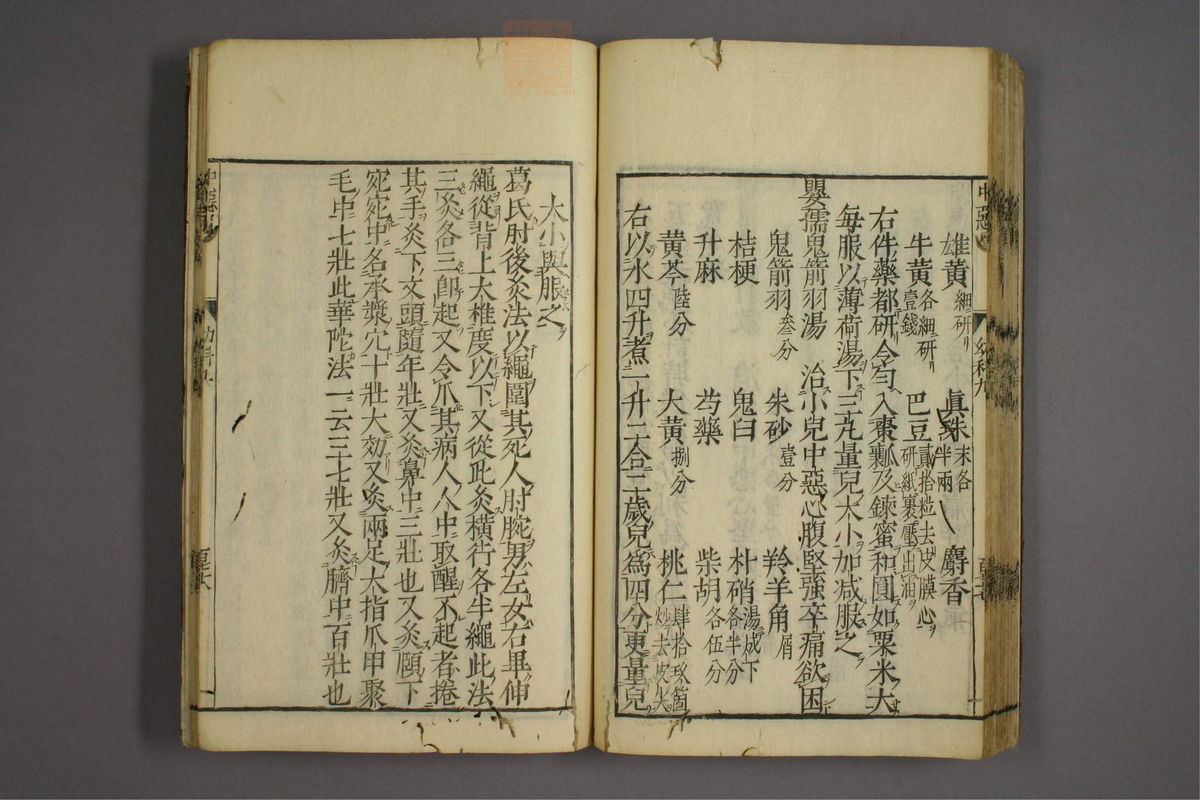 雄黄細研 眞珠末各半兩 麝香
牛黄各細研壹錢 巴豆貳拾粒去皮膜心研紙裹壓出油
右件藥都研令勻入棗瓤及鍊蜜和圓如粟米大
每服以薄荷湯下三丸量兒大小加减服之
嬰孺鬼箭羽湯 治小兒中惡心腹堅強卒痛欲困
鬼箭羽叁分 朱砂壹分 羚羊角屑
桔梗 鬼臼 朴硝湯成下各半分
升麻 芍藥 柴胡各伍分
黄芩陸分 大黄捌分 桃仁肆拾玖箇炒去皮尖
右以水四升煮一升二合二歲兒爲四分更量兒
大小與服之
葛氏肘後灸法以繩圍其死人肘腕男左女右畢伸
繩從背上大椎度以下又從此灸橫行各半繩此法
三灸各三即起又令爪其病人人中取醒不起者捲
其手灸下文頭隨年壯又灸鼻中三壯也又灸頤下
宛宛中名承漿穴十壯大効又灸兩足大指爪甲聚
毛中七壯此華陀法一云三七壯又灸臍中百壯也
中惡
幼科九